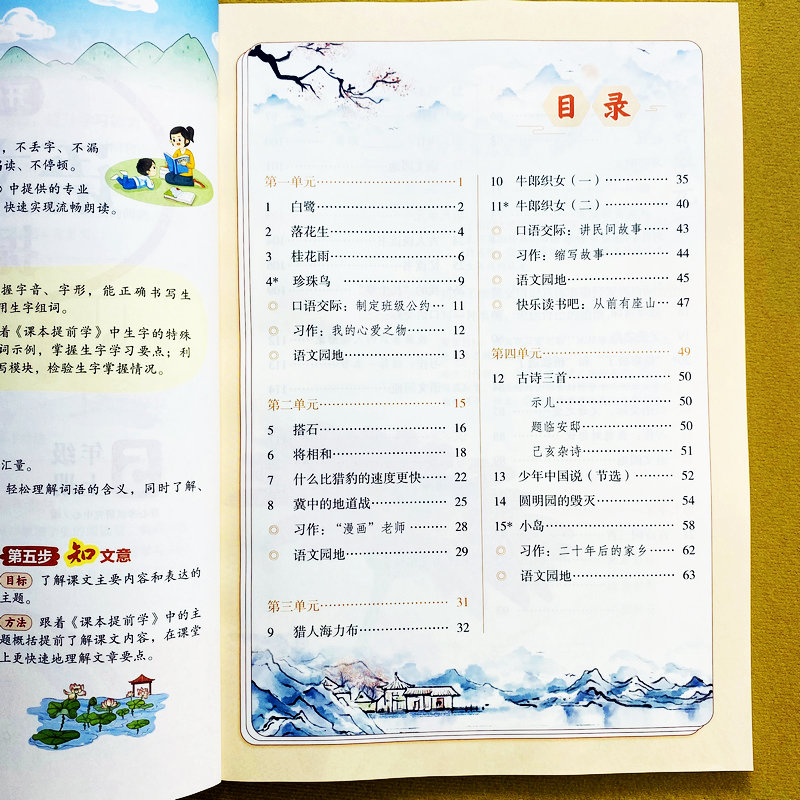 ，不丢字、不漏
读、不停顿。
中提供的专业
快速实现流畅朗读。
握字音、字形，能正确书写生
用生字组词。
着《课本提前学》中生字的特殊
词示例，掌握生字学习要点；利
写模块，检验生字掌握情况。
汇量。
轻松理解词语的含义，同时了解、
第五步 知文意
目标 了解课文主要内容和表达的
主题。
方法 跟着《课本提前学》中的主
题概括提前了解课文内容，在课堂
上更快速地理解文章要点。
目录
第一单元…………1
1 白鹭…………2
2 落花生…………4
3 桂花雨…………6
4* 珍珠鸟…………9
口语交际：制定班级公约…11
习作：我的心爱之物…………12
语文园地…………13
第二单元…………15
5 搭石…………16
6 将相和…………18
7 什么比猎豹的速度更快……22
8 冀中的地道战…………25
习作：“漫画”老师…………28
语文园地…………29
第三单元…………31
9 猎人海力布…………32
10 牛郎织女（一）…………35
11* 牛郎织女（二）…………40
口语交际：讲民间故事……43
习作：缩写故事…………44
语文园地…………45
快乐读书吧：从前有座山…47
第四单元…………49
12 古诗三首…………50
示儿…………50
题临安邸…………50
己亥杂诗…………51
13 少年中国说（节选）…………52
14 圆明园的毁灭…………54
15* 小岛…………58
习作：二十年后的家乡……62
语文园地…………63